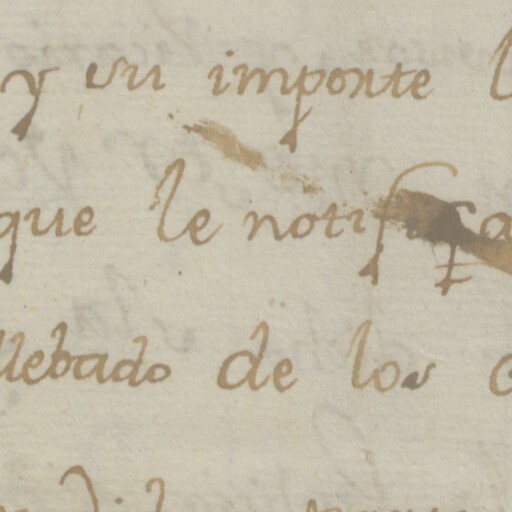 y su importe
que le notifica
llebado de los